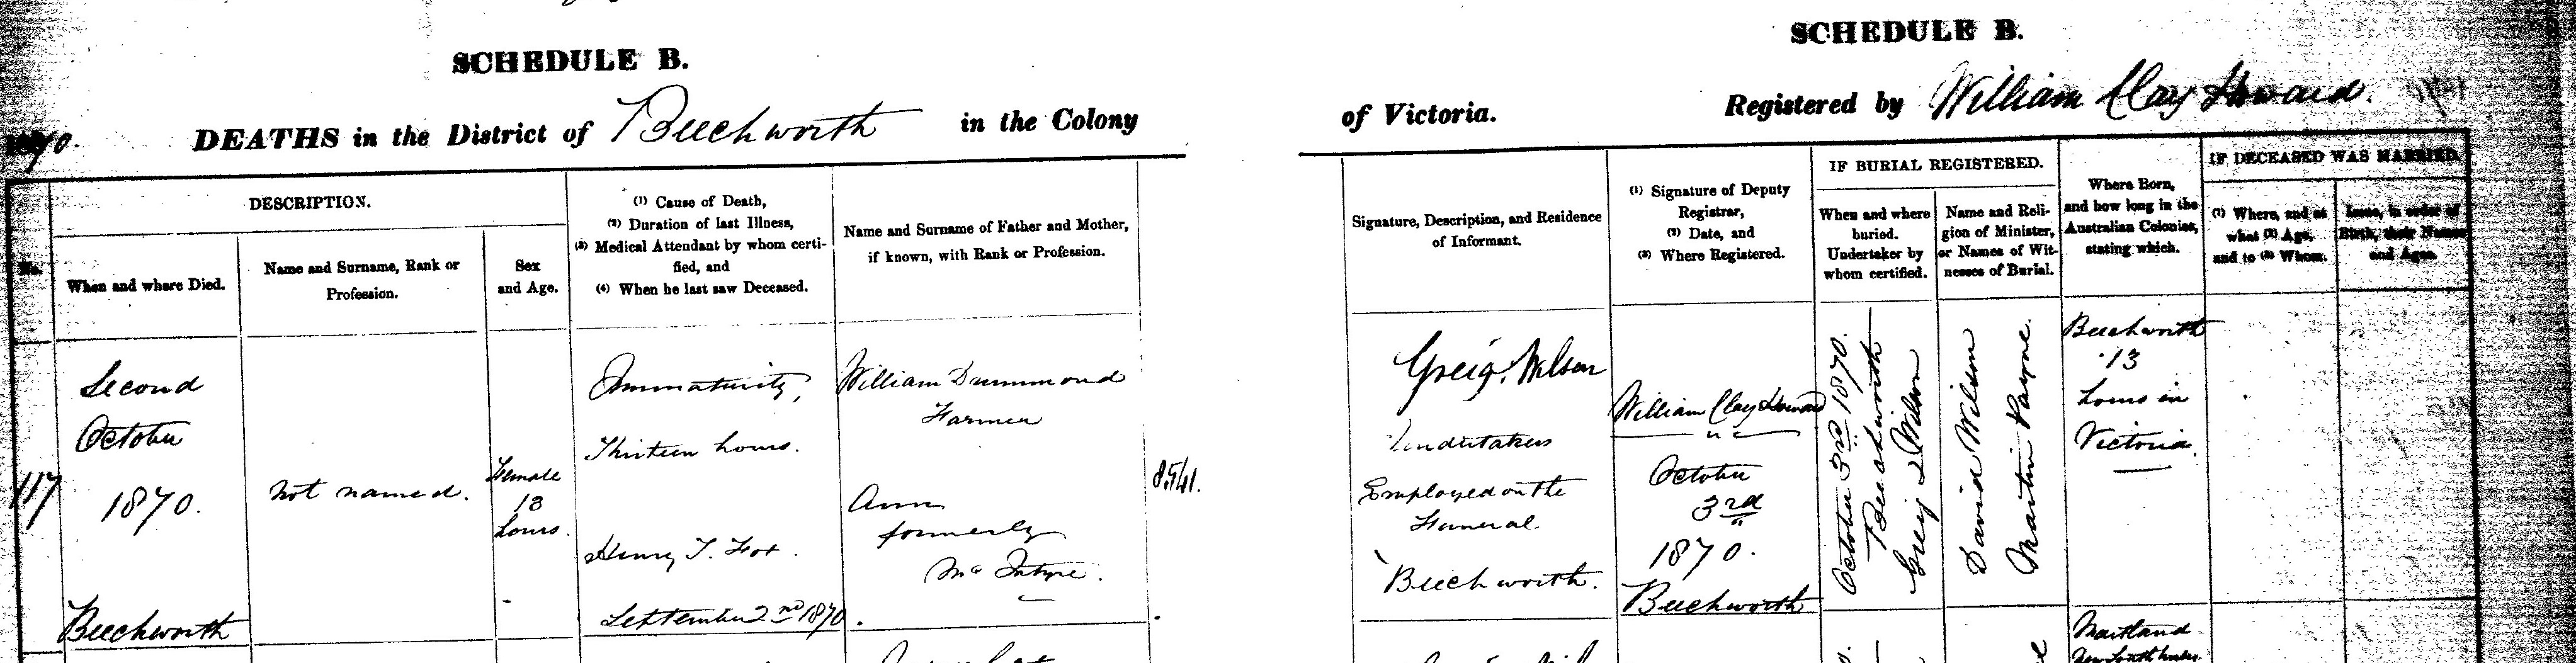 SCHEDULE B.
DEATHS in the District of Beechworth in the Colony
No.
DESCRIPTION.
When and where Died.
Name and Surname, Rank or
Profession.
Sex
and Age.
(1) Cause of Death,
(2) Duration of last Illness,
(3) Medical Attendant by whom certi-
fied, and
(4) When he last saw Deceased.
Name and Surname of Father and Mother,
if known, with Rank or Profession.
117
Second
October
1870.
Beechworth
Not named.
Female
13
hours.
Immaturity,
Thirteen hours.
Henry T. Fox.
September 2nd 1870.
William Drummond
Farmer
Ann
formerly
McIntyre.
8541.
SCHEDULE B.
of Victoria. Registered by William Clay Howard.
Signature, Description, and Residence
of Informant.
(1) Signature of Deputy
Registrar,
(2) Date, and
(3) Where Registered.
IF BURIAL REGISTERED.
When and where
buried.
Undertaker by
whom certified.
Name and Reli-
gion of Minister,
or Names of Wit-
nesses of Burial.
Where Born,
and how long in the
Australian Colonies,
stating which.
IF DECEASED WAS MARRIED.
(1) Where, and at
what (2) Age,
and to (3) Whom.
Issue, in order of
Birth, their Names
and Ages.
Greig, Wilson
Undertakers
Employed on the
Funeral.
Beechworth.
William Clay Howard
October
3rd
1870.
Beechworth
October 3rd 1870.
Beechworth
Greig & Wilson
David Wilson
Martin Payne.
Beechworth
13
hours in
Victoria.
Maitland
New South Wales